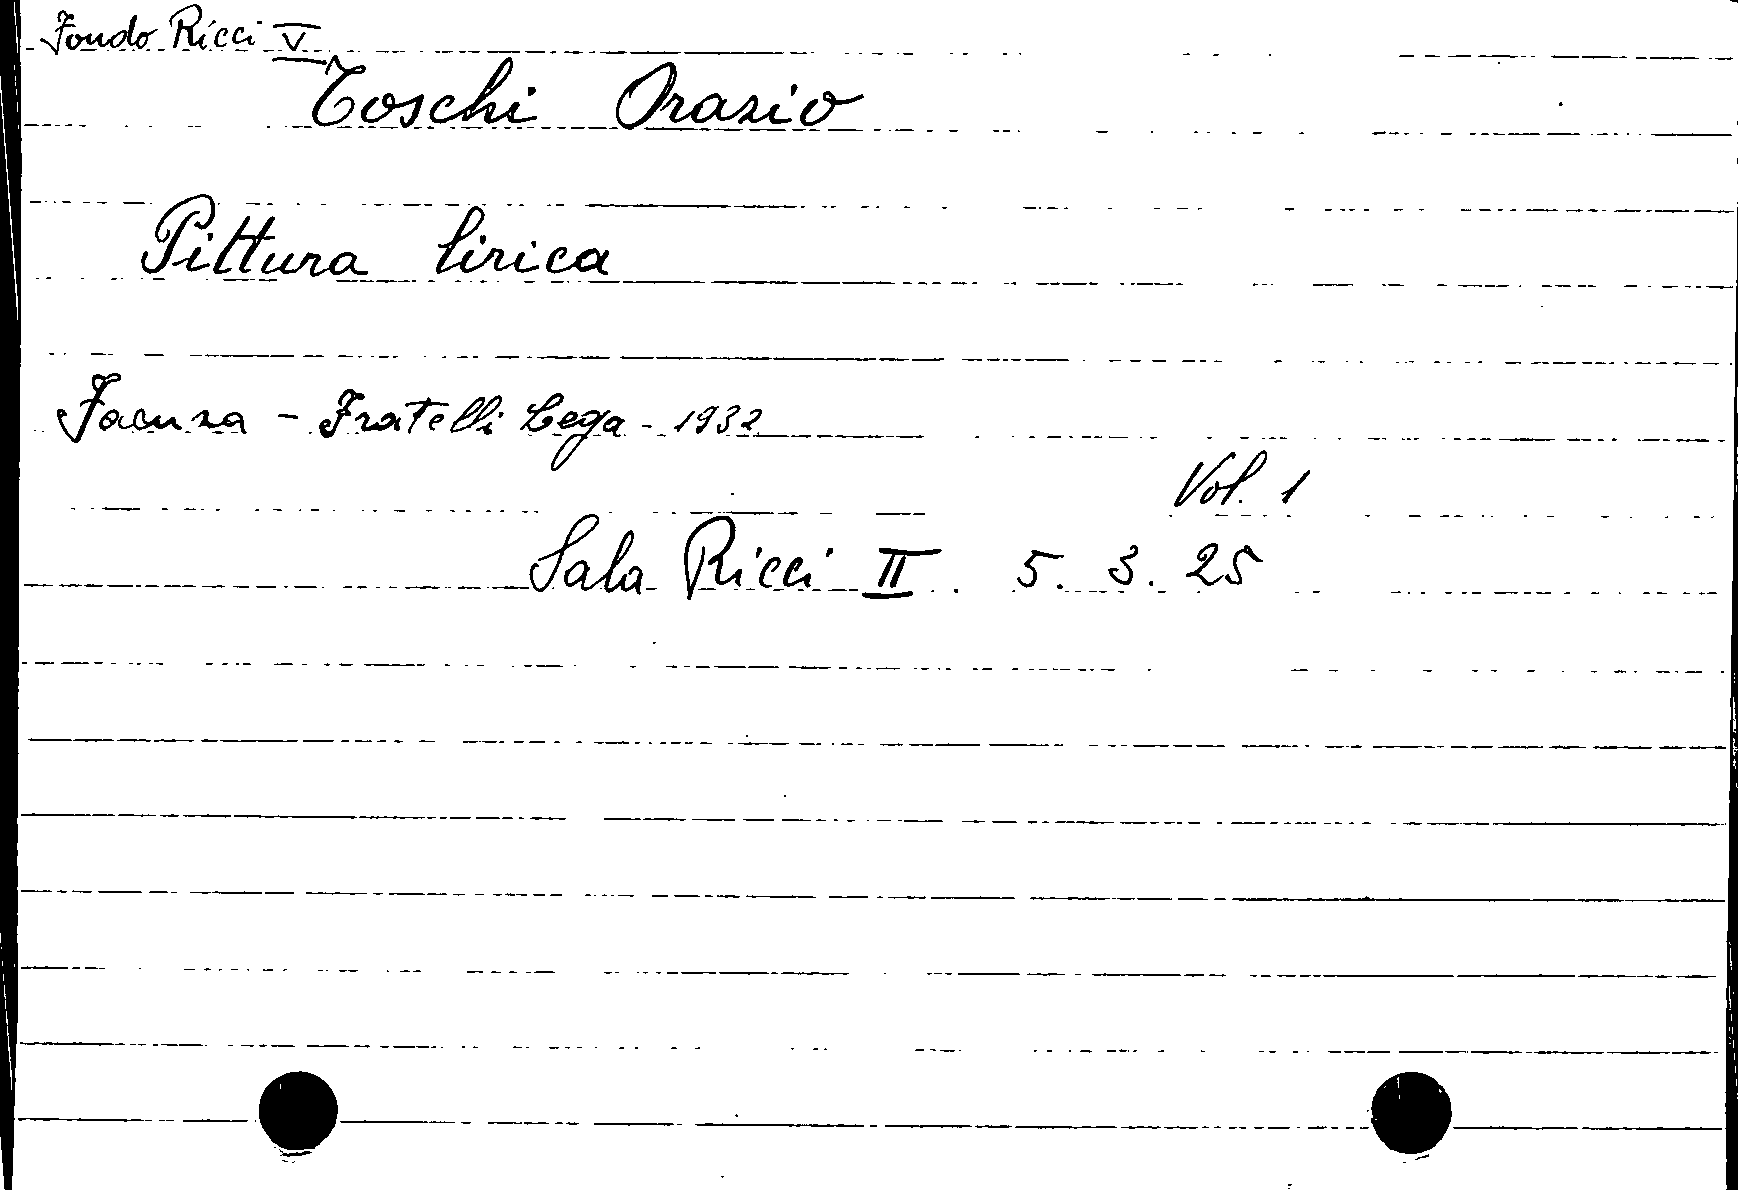 Fondo Ricci V
Toschi Orazio
Pittura lirica
Faenza - Fratelli Lega - 1932
Vol. 1
Sala Ricci II. 5. 3. 25